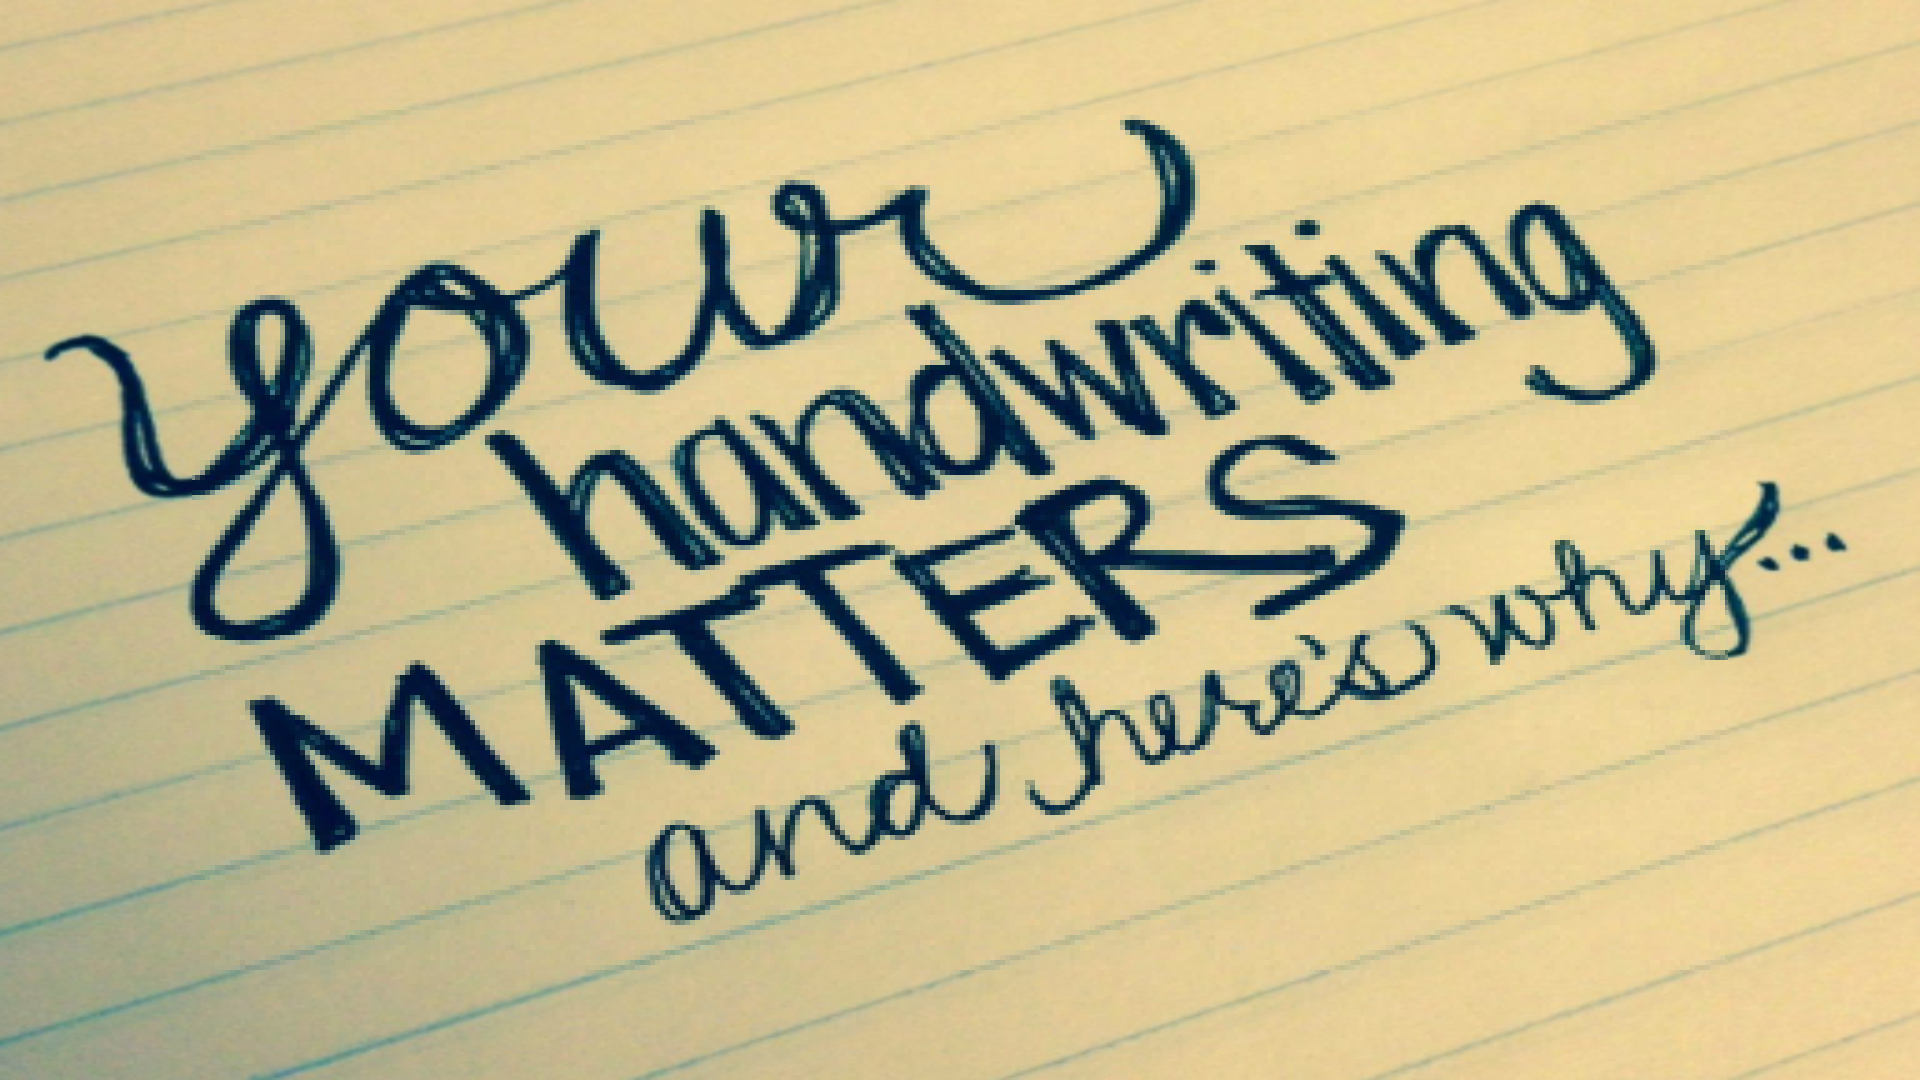 your
handwriting
MATTERS
and here's why...